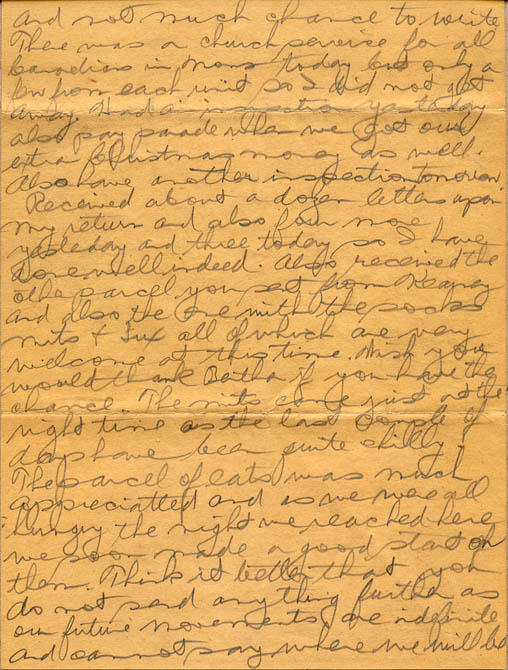 and not much chance to write
There was a church service for all
Canadians in Mons today but only a
few from each unit so I did not get
away. Had a inspection yesterday
also pay parade when we got our
extra Christmas money as well.
Also have another inspection tomorrow.
Received about a dozen letters upon
my return and also four more
yesterday and three today so I have
done well indeed. Also received the
other parcel you sent from Kearney
and also the one with the socks
mits + Tux all of which are very
welcome at this time. Wish you
would thank if you have the
chance. The mits come just at the
right time as the last couple of
days have been quite chilly.
The parcel of eats was much
appreciatted and as we were all
hungry the night we reached here
we soon made a good start on
them. Think it better that you
do not send anything further as
our future movements are indefinite
and cannot say where we will be